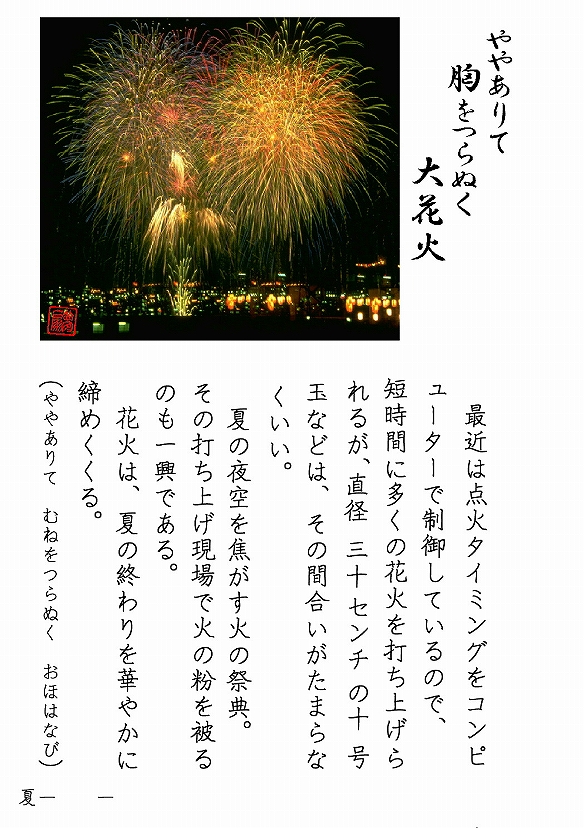 ややありて
胸をつらぬく
大花火
最近は点火タイミングをコンピ
ューターで制御しているので、
短時間に多くの花火を打ち上げら
れるが、直径 三十センチ の十 号
玉などは、その間合いがたまらな
くいい。
夏の夜空を焦がす火の祭典。
その打ち上げ現場で火の粉を被る
のも一興である。
花火は、夏の終わりを華やかに
締めくくる。
(ややありて むねをつらぬく おほはなび)
夏— —